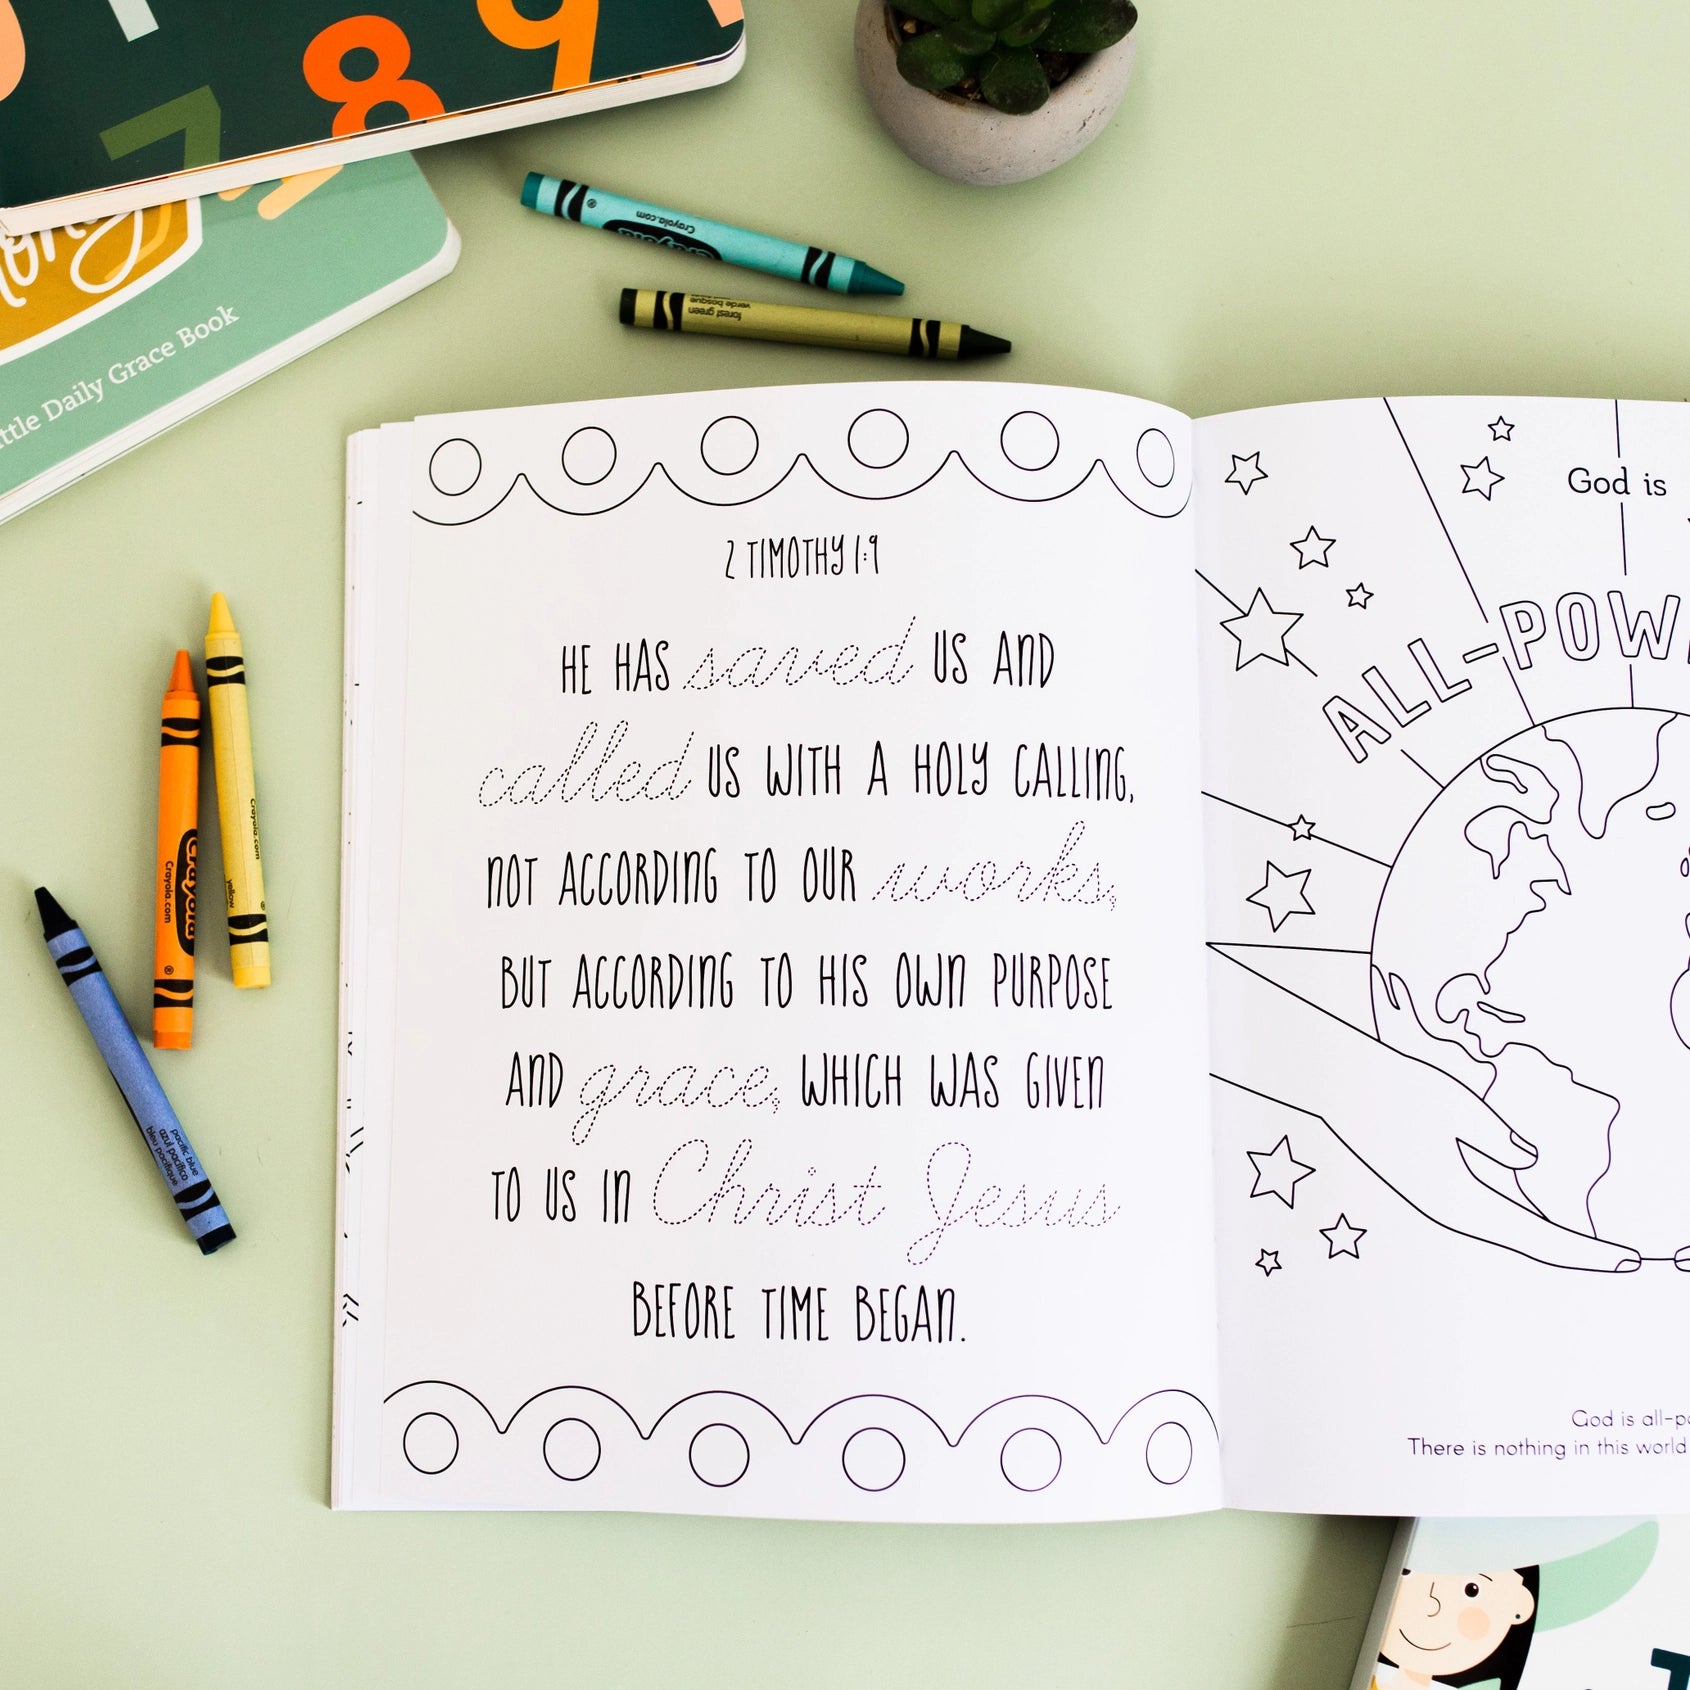 8 9
7
Little Daily Grace Book
Crayola
Crayola.com
forest green
verde bosque
2 TIMOTHY 1:9
HE HAS saved US AND
called US WITH A HOLY CALLING,
NOT ACCORDING TO OUR works,
BUT ACCORDING TO HIS OWN PURPOSE
AND grace, WHICH WAS GIVEN
TO US IN Christ Jesus
BEFORE TIME BEGAN.
God is
ALL-POW
God is all-po
There is nothing in this world
Crayola
Crayola.com
Crayola.com
yellow
pacific blue
azul pacífico
bleu pacifique